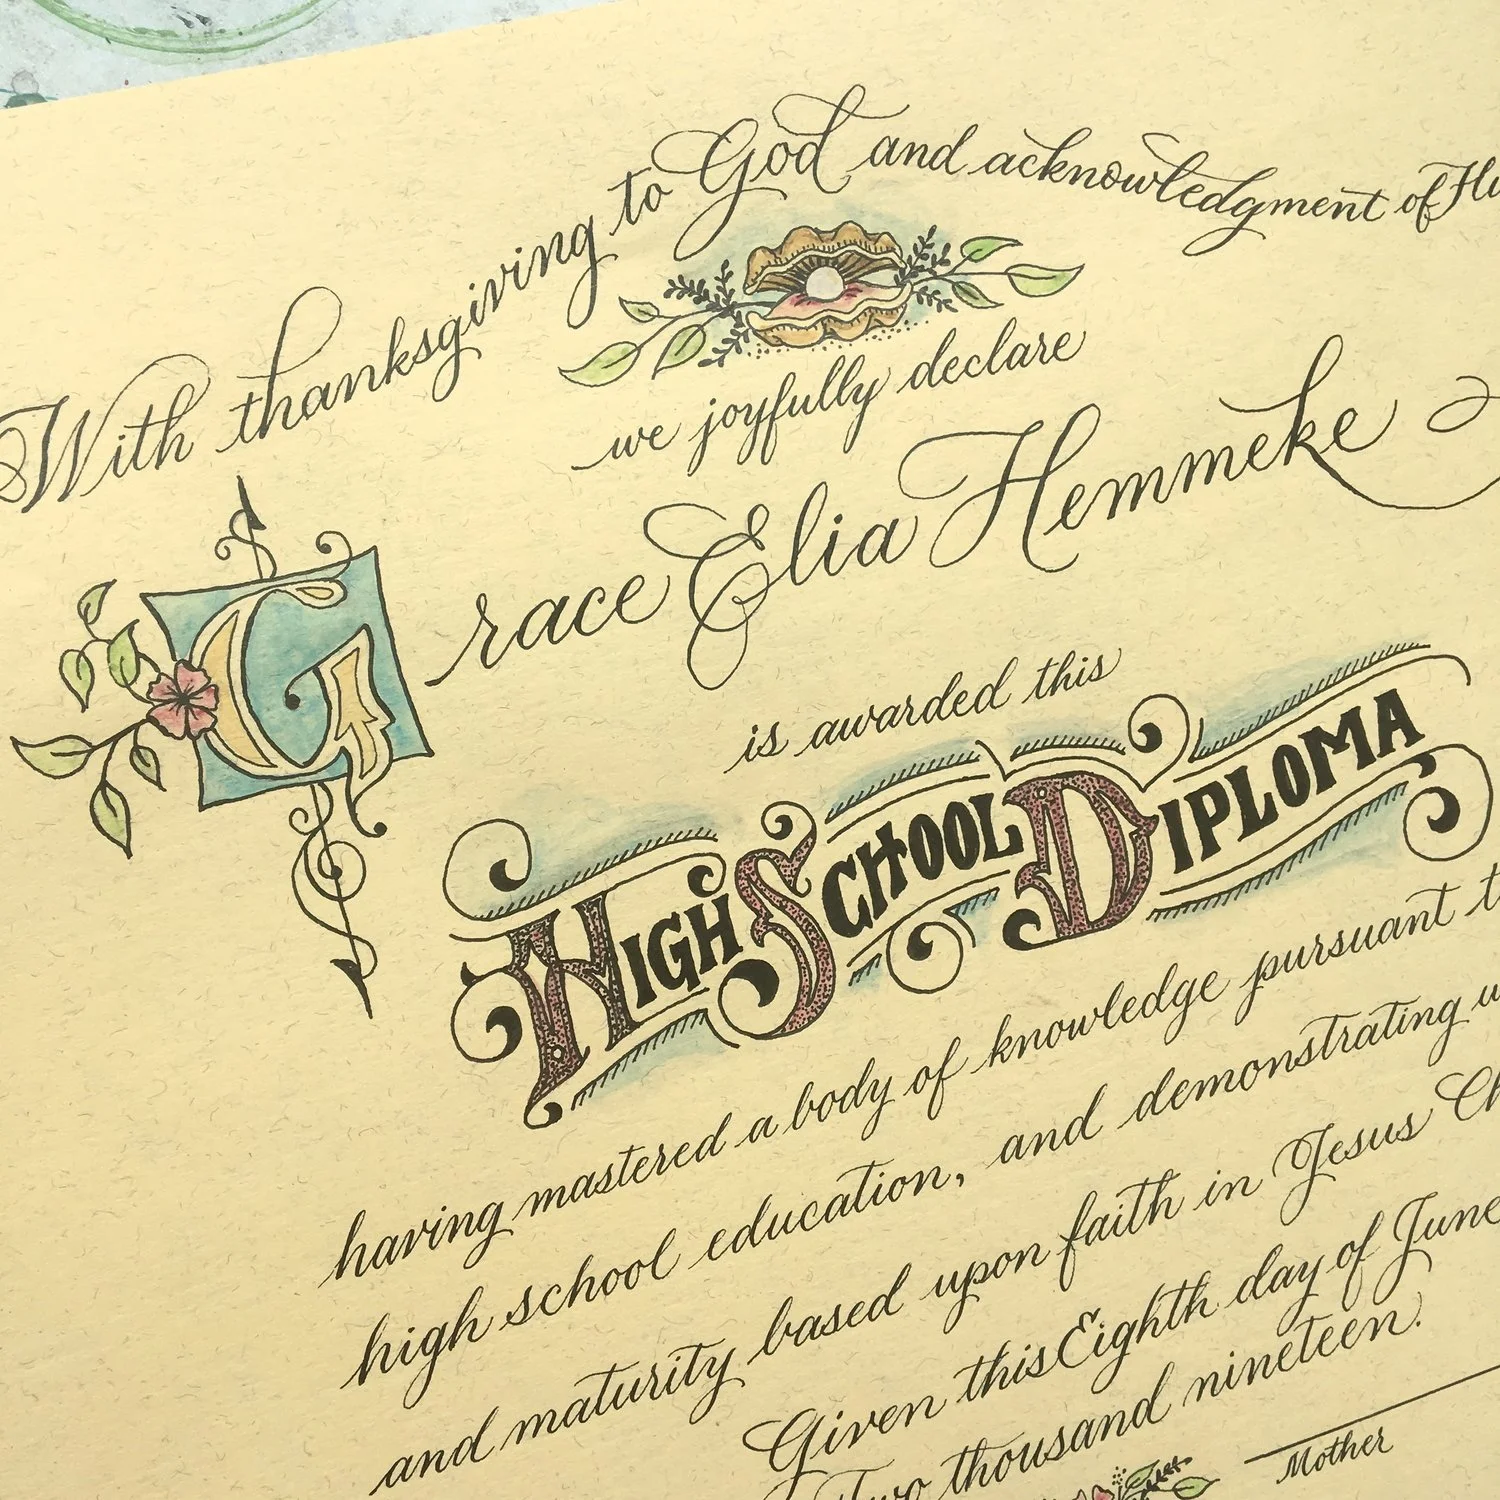 With thanksgiving to God and acknowledgment of
we joyfully declare
Grace Elia Hemmeke
is awarded this
HIGH SCHOOL DIPLOMA
having mastered a body of knowledge pursuant
high school education, and demonstrating
and maturity based upon faith in Jesus
Given this Eighth day of June
Two thousand nineteen.
Mother